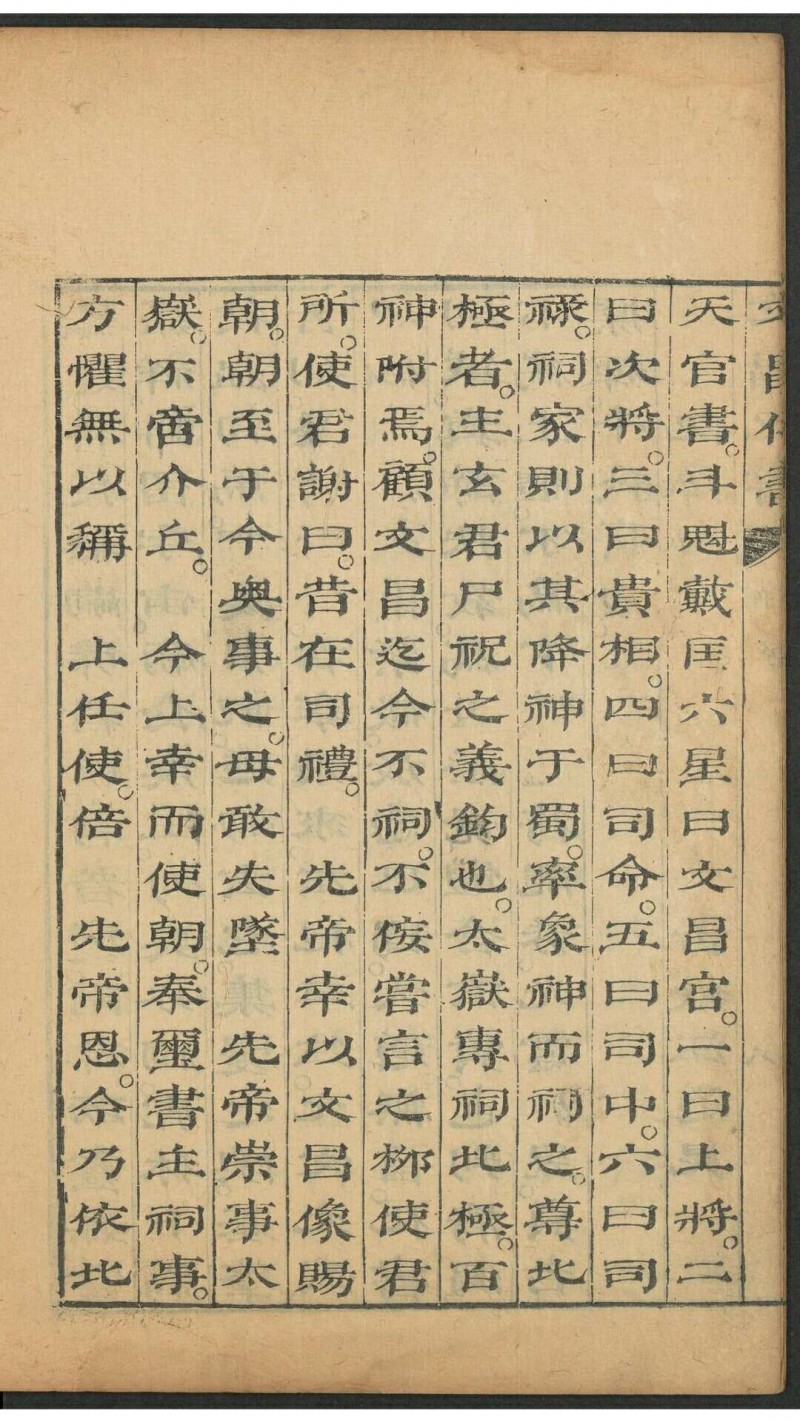 天官書。斗魁戴匡六星曰文昌宮。一曰上將。二
曰次將。三曰貴相。四曰司命。五曰司中。六曰司
祿。祠家則以其降神于蜀。率象神而祠之。尊北
極者。主玄君尸祝之義鈞也。太嶽專祠北極。百
神附焉。顧文昌迄今不祠。不佞嘗言之栁使君
所。使君謝曰。昔在司禮。 先帝幸以文昌像賜
朝。朝至于今奥事之。毋敢失墜 先帝崇事太
嶽。不啻介丘。 今上幸而使朝。奉璽書主祠事。
方懼無以稱 上任使。倍 先帝恩。今乃依北